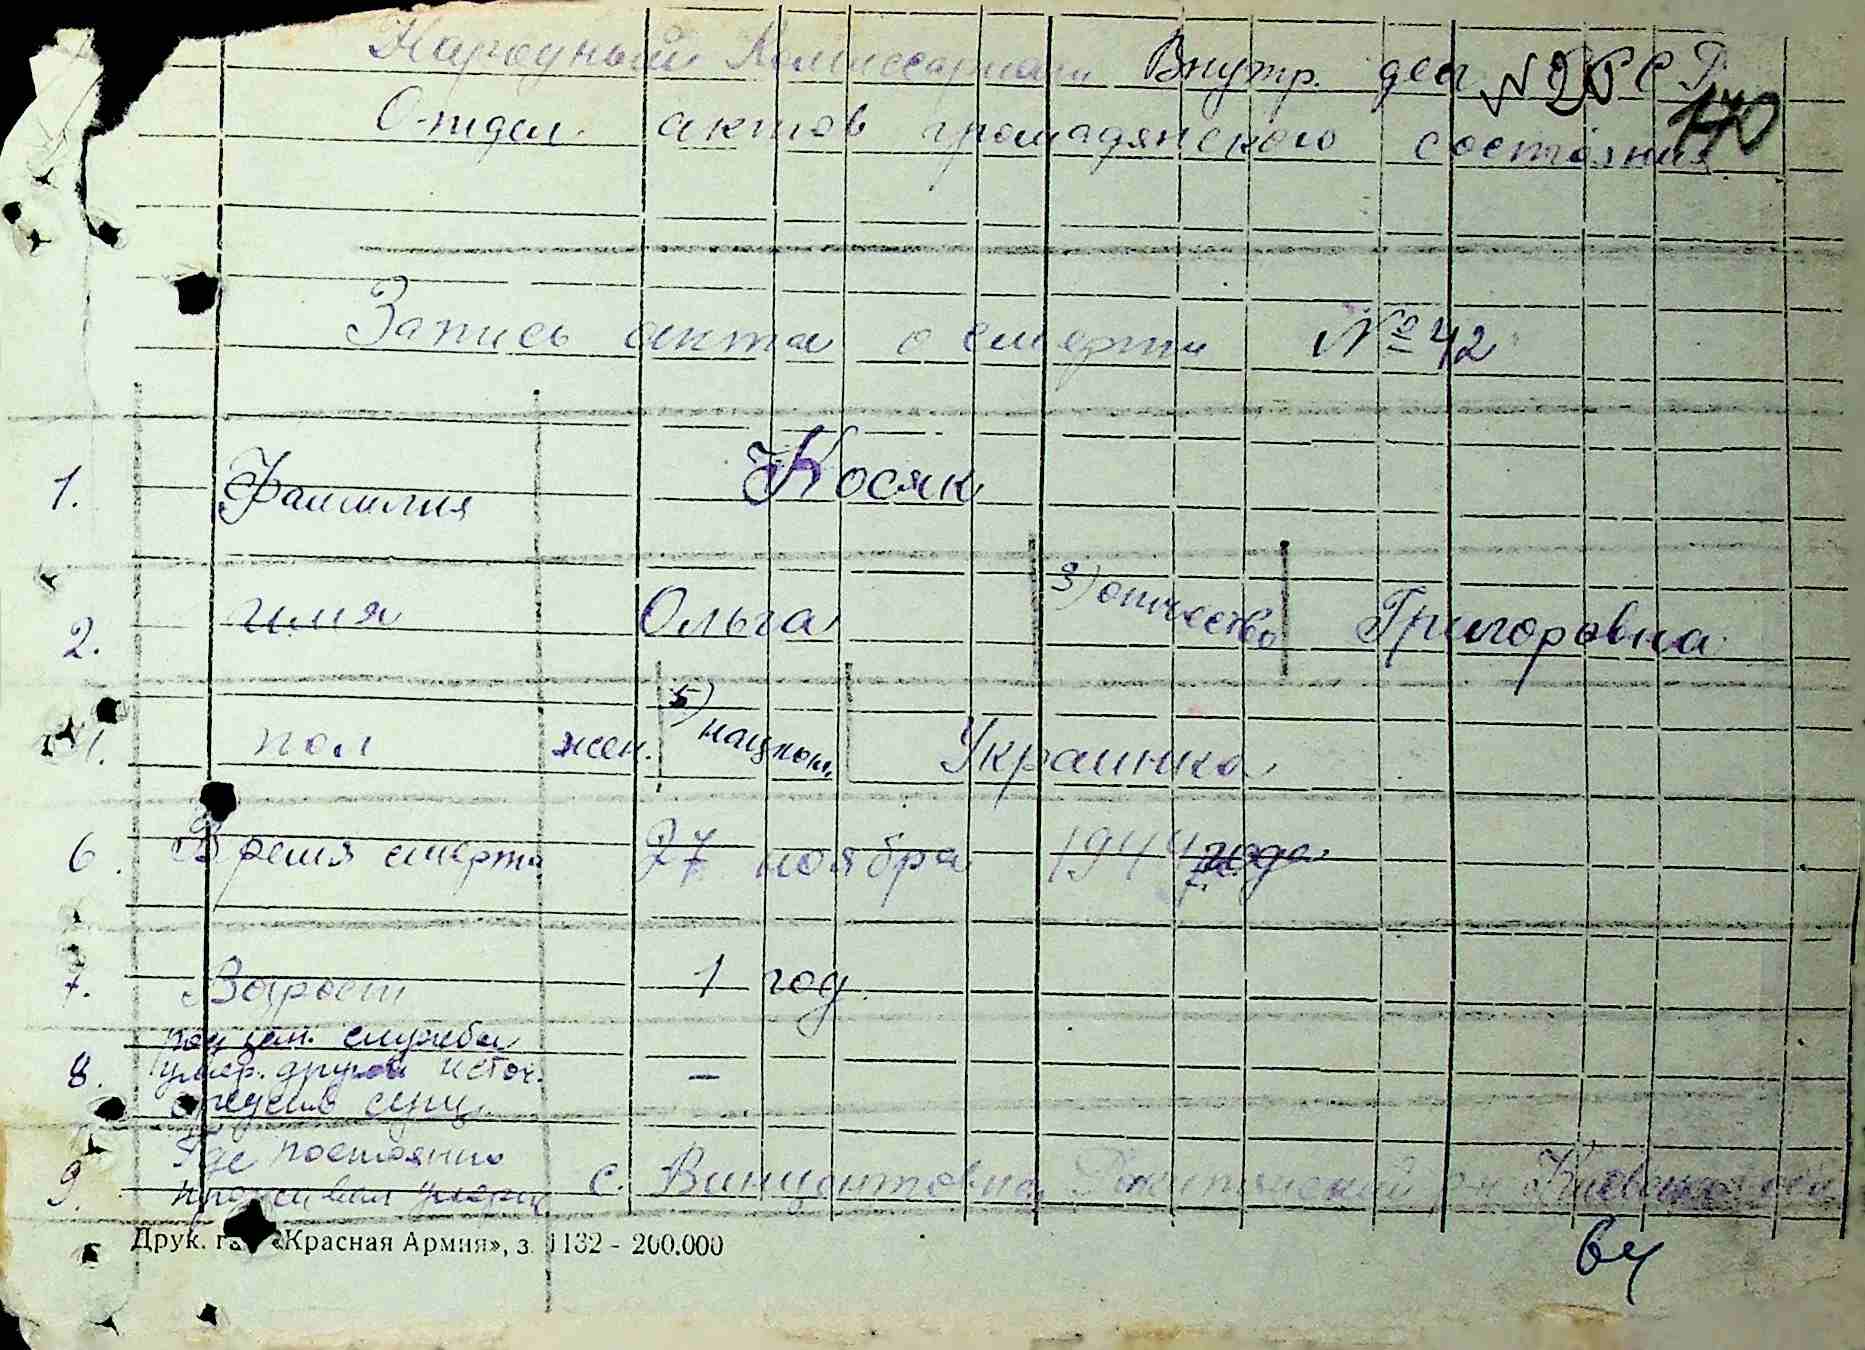 Народный Комиссариат Внутр. дел
170
Отдел актов громадянского состояния
Запись акта о смерти № 42
1. Фамилия Косяк
2. имя Ольга 3) отчество Григоровна
4. пол жен. 5) национ. Украинка
6. Время смерти 27 ноября 1944 года
7. Возраст 1 год.
служба
8. умер. другой источ. –
средств сущ.
Где постоянно
9. проживал умерш. с. Винцентовка р-н Киевской обл
Друк. газ. «Красная Армия», з. 1132 - 200.000
64